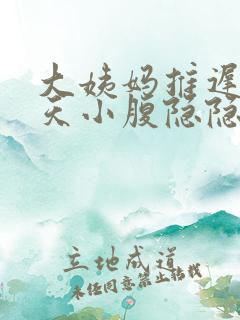 大姨妈推迟
天小腹隐隐
立地成道
未经同意禁止转载